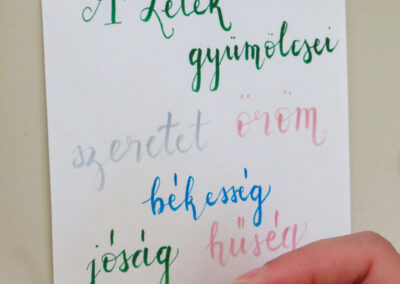 A Lélek
gyümölcsei
szeretet öröm
békesség
jóság hűség